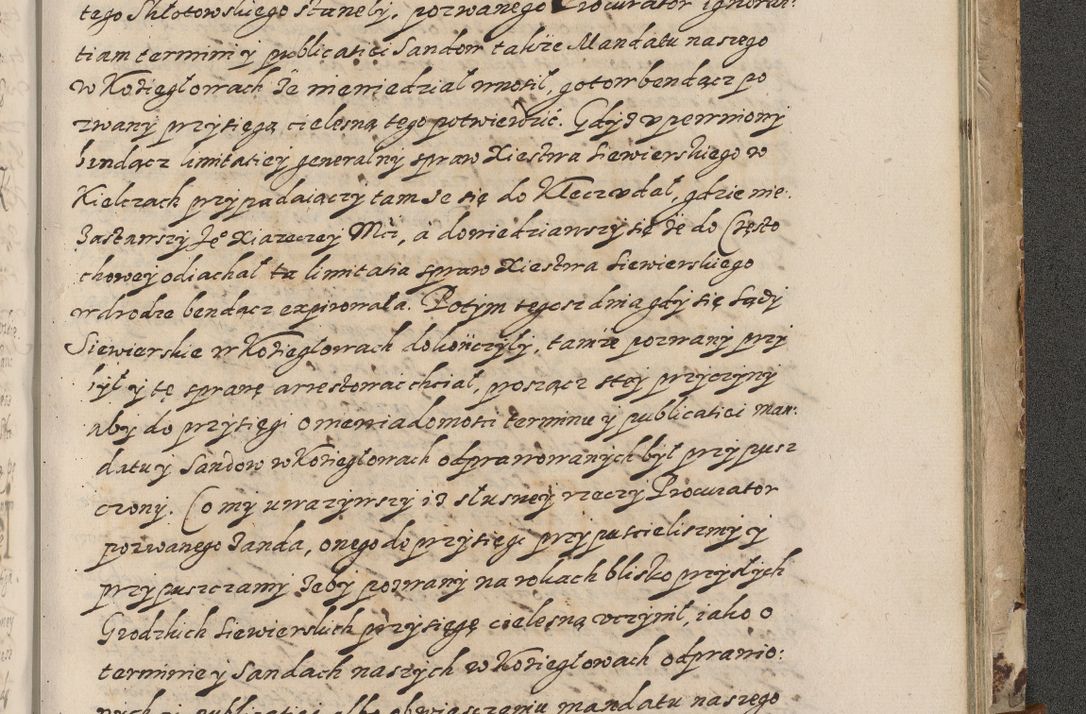 tego Skłotowskiego stanęły, pozwanego Procurator ignoran:
tiam termini y publicatiei Sandow także Mandatu naszego
w Kozięgłowach że nieniedział wnosił, gotow bendącz po
zwany przysięgą cielesną tego potwierdzić. Gdyż upewniony
bendącz limitatiey generalny spraw Xiestwa Siewierskiego w
Kielczach przypadaiączy tamże się do Kłecz udał, gdzie nie
zastawszy Je° Xiazęczey Mći, a dowiedziawszy się że do Często
chowey odiachał ta limitatia spraw Xiestwa Siewierskiego
w drodze bendacz expirowała. Potym tegosz dnia gdy się Sądy
Siewierskie w Kozięgłowach dokończyły, tamże pozwany przy
był y tę sprawę arrestowac chciał, proszącz stey przyczyny
aby do przysięgi o niewiadomosci terminu y publicatiei man:
datu y Sandow w Kozięgłowach odprawowanych był przypusz
czony. Co my uwazywszy iż słusney rzeczy Procurator
pozwanego żanda, onego do przysięgi przypuscielismy y
przypuszczamy żeby pozwany na rokach blisko przyszłych
Grodzkich Siewierskich przysięgę cielesną uczynił, iako o
terminie y Sandach naszych w Kozięgłowach odprawio:
nych y publicatiei albo obwiasczeniu mandatu naszego